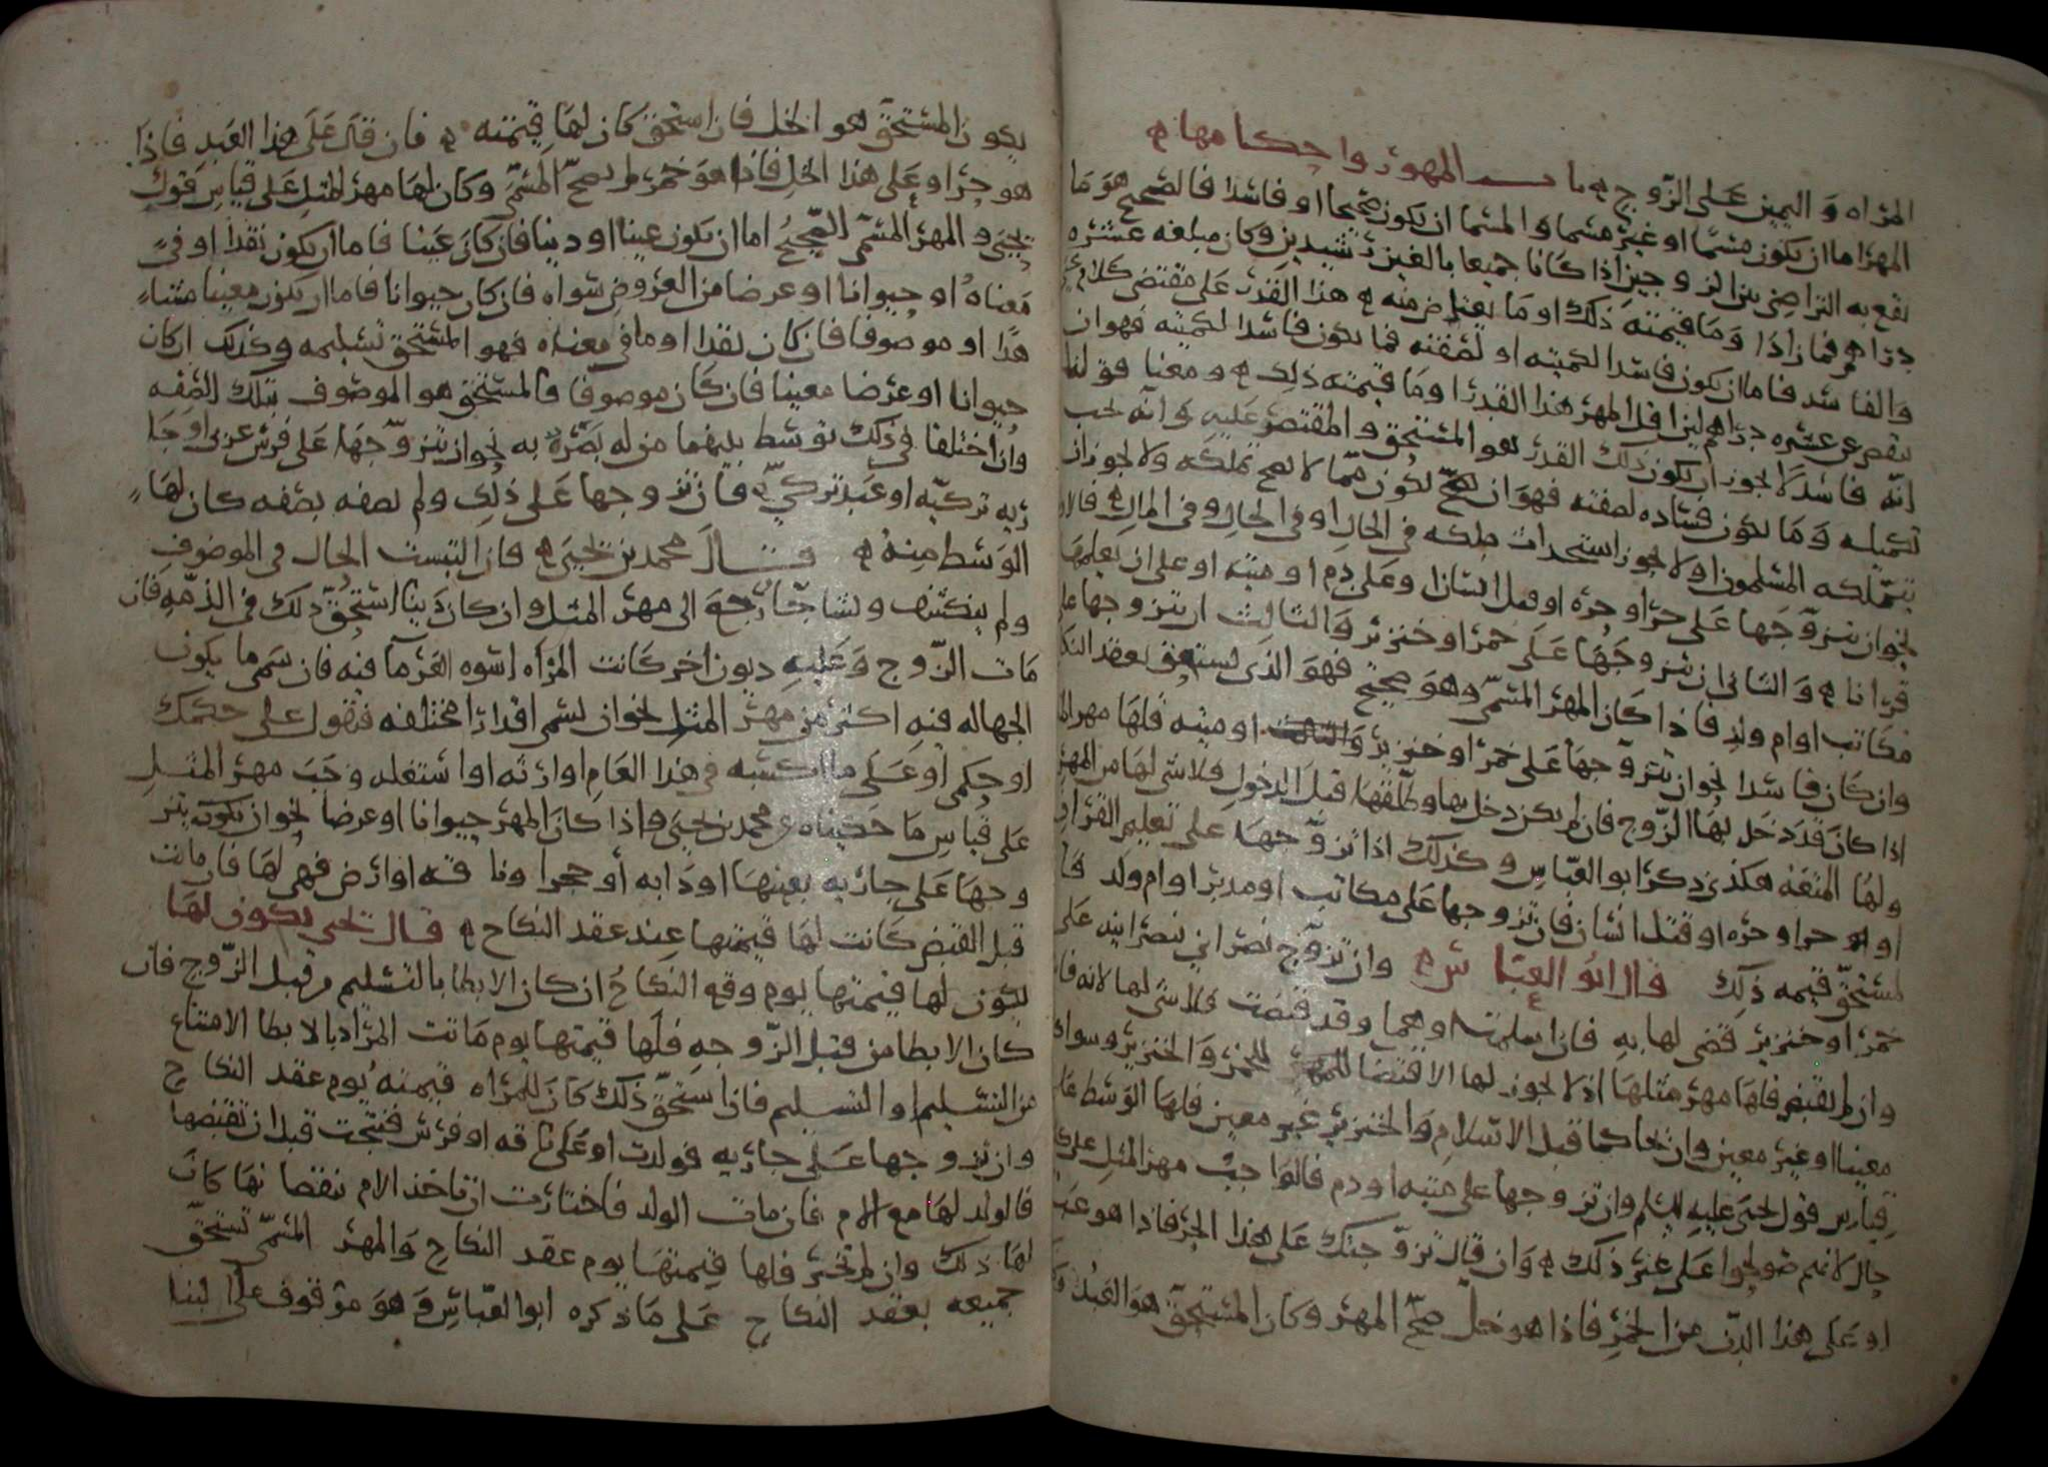 المراه و اليمين على الزوج ه باب المهور واحكامها ه
المهر اما ان يكون مسما او غير مسما و المسما ان يكون صحيحا او فاسدا فالصحيح هو ما
يقع به التراضي بين الزوجين اذا كانا جميعا بالغين رشيدين وكان مبلغه عشره
دراهم فما زاد او ما قيمته ذلك او ما يعتاض منه ه هذا القدر على مقتضى كلام
والفاسد فاما ان يكون فاسدا لكميته او لصفته فما يكون فاسدا لكميته فهو ان
ينقص عن عشره دراهم لان اقل المهر هذا القدر او ما قيمته ذلك ه و معنا قولنا
انه فاسد لا يجوز ان يكون ذلك القدر هو المستحق و المقتصر عليه و انه يجب
تكميله و ما يكون فساده لصفته فهو ان يكون مما لا يصح تملكه ولا يجوز ان
يتملكه المسلمون او لا يجوز استحداث ملكه في الحال او في الحال و في المال ه فالاول
نحو ان يتزوجها على حر او حره او قتل انسان او على دم او ميته او على ان يعلمها
قرانا ه و الثاني ان يتزوجها على خمر او خنزير و الثالث ان يتزوجها على
مكاتب او ام ولد فاذا كان المهر المسمى وهو صحيح فهو الذي يستحق بعقد النكاح
وان كان فاسدا نحو ان يتزوجها على خمر او خنزير او ميته فلها مهر المثل
اذا كان قد دخل بها الزوج فان لم يكن دخل بها و طلقها قبل الدخول فلا شي لها من المهر
ولها المتعه هكذي ذكر ابو العباس وكذلك اذا تزوجها على تعليم القران
او حر او حره او قتل انسان فان تزوجها على مكاتب او مدبر او ام ولد فا
لمستحق قيمه ذلك قال ابو العباس ه وان تزوج نصراني نصرانيه على
خمر او خنزير قضي لها به فان اسلمت او هما وقد قبضت فلا شي لها لانه فات
وان لم تقبض فلها مهر مثلها اذ لا يجوز لها الاقتضا للخمر والخنزير وسواء
معينا او غير معين وان تحاكما قبل الاسلام والخنزير غير معين فلها الوسط على
قياس قول يحيى عليه السلم وان تزوجها على ميته او دم فالواجب مهر المثل على كل
حال لانهم صولحوا على غير ذلك ه وان قال تزوجتك على هذا الحر فاذا هو عبد
او على هذا الدن من الخمر فاذا هو خل صح المهر وكان المستحق هو العبد
يكون المستحق هو الخل فان استحق كان لها قيمته ه فان قال على هذا العبد فاذا
هو حر او على هذا الخل فاذا هو خمر لم يصح المسمى وكان لها مهر المثل على قياس قول
يحيى و المهر المسمى الصحيح اما ان يكون عينا او دينا فان كان عينا فاما ان يكون نقدا او في
معناه او حيوانا او عرضا من العروض سواه فان كان حيوانا فاما ان يكون معينا مشا
هدا او موصوفا فان كان نقدا او ما في معناه فهو المستحق تسليمه وكذلك ان كان
حيوانا او عرضا معينا فان كان موصوفا فالمستحق هو الموصوف بتلك الصفه
وان اختلفا في ذلك توسط بينهما من له بصر به نحو ان تزوجها على فرس عربي او جا
ريه تركيه او عبد تركي ه فان تزوجها على ذلك ولم يصفه بصفه كان لها
الوسط منه ه قال محمد بن يحيى ه فان التبست الحال في الموصوف
ولم ينكشف وتشاجا رجع الى مهر المثل وان كان دينا استحق ذلك في الذمه فان
مات الزوج وعليه ديون اخر كانت المراه اسوه الغرما فيه فان سمى ما يكون
الجهاله فيه اكثر من مهر المثل نحو ان يسمى اقدارا مختلفه فيقول على حكمك
او حكمي او على ما اكتسبه في هذا العام او ارثه او استغله وجب مهر المثل
على قياس ما حكيناه عن محمد بن يحيى واذا كان المهر حيوانا او عرضا نحو ان يكون يتز
وجها على جاريه بعينها او دابه او حجرا وناقه او ارض فهي لها فان مات
قبل القبض كانت لها قيمتها عند عقد النكاح ه قال يحيى يكون لها
يكون لها قيمتها يوم وقع النكاح ان كان الابطا بالتسليم من قبل الزوج فان
كان الابطا من قبل الزوجه فلها قيمتها يوم ماتت المراد بالابطا الامتناع
من التسليم او التسليم فاذا استحق ذلك كان للمراه قيمته يوم عقد النكاح
وان تزوجها على جاريه فولدت او على ناقه او فرس فنتجت قبل ان تقبضها
فالولد لها مع الام فان مات الولد فاختارت ان تاخذ الام بنقصانها كان
لها ذلك وان لم تختر فلها قيمتها يوم عقد النكاح والمهر المسمى تستحق
جميعه بعقد النكاح على ما ذكره ابو العباس وهو موقوف على